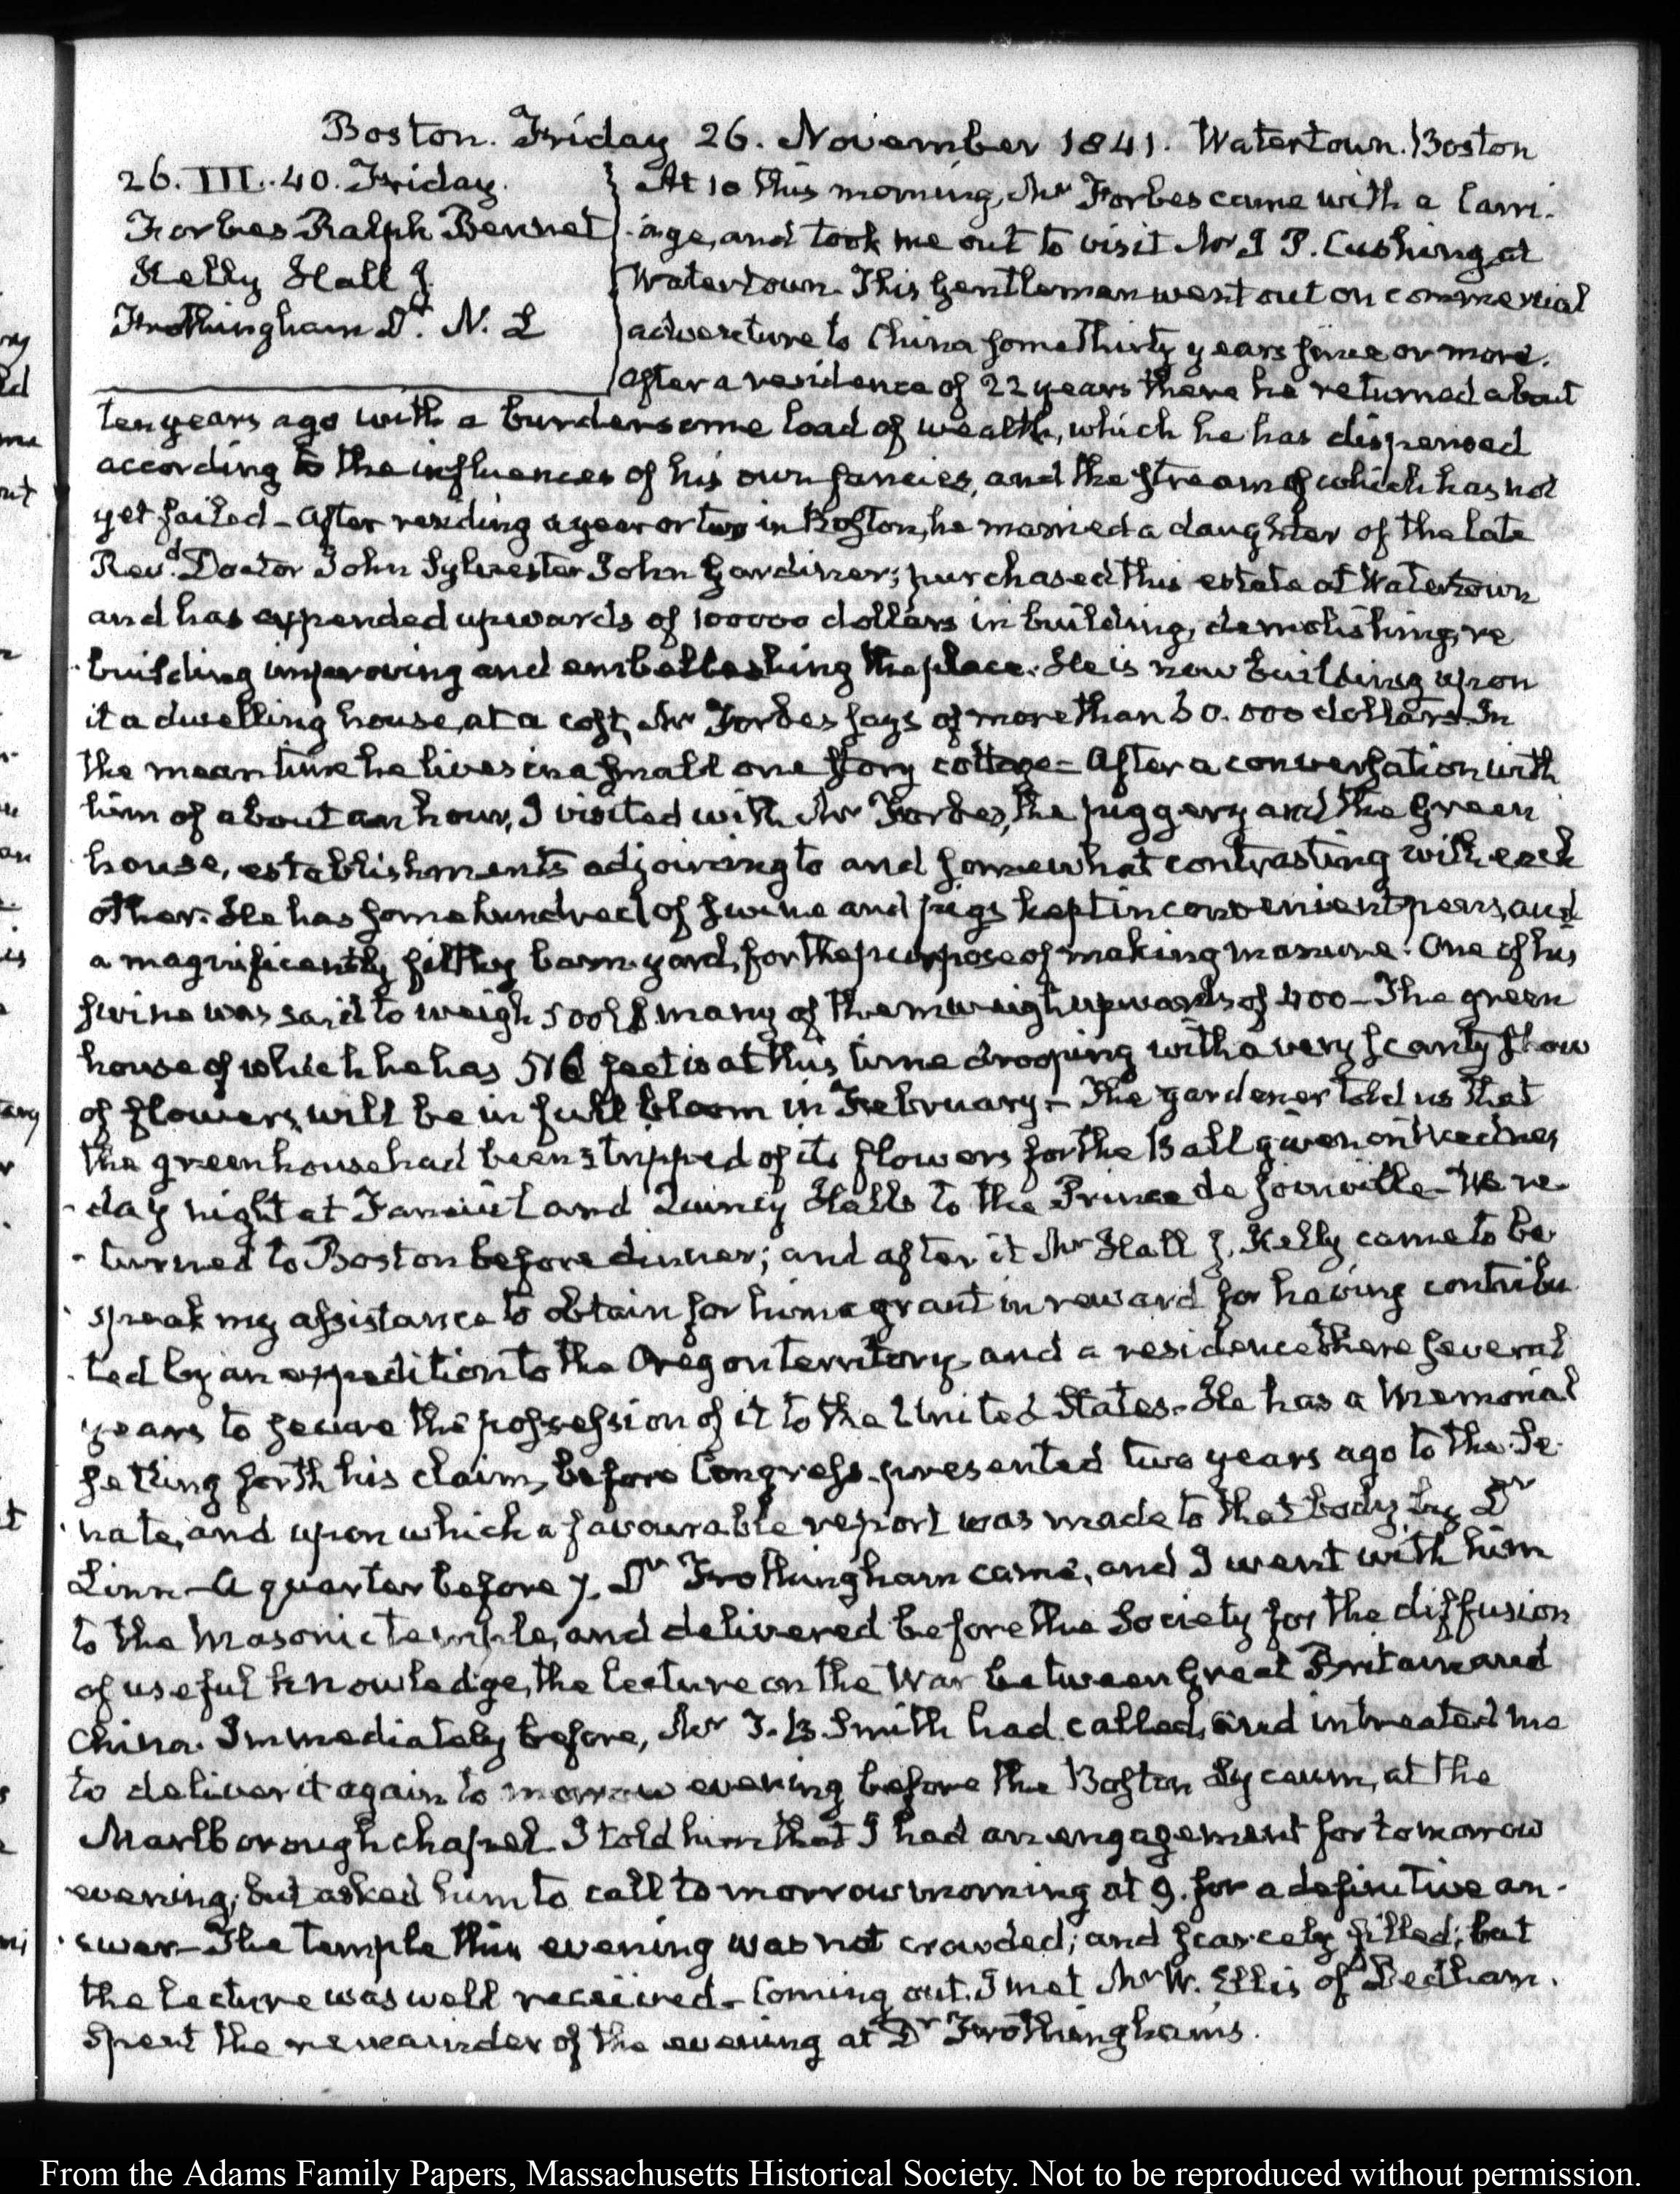 Boston. Friday 26. November 1841. Watertown. Boston
26. III. 40. Friday.
Forbes Ralph Bennet
Kelly Hall J.
Frothingham Dr. N. L
At 10 this morning, Mr Forbes came with a carri-
-age, and took me out to visit Mr J P. Cushing, at
Watertown. This Gentleman went out on commercial
adventure to China some thirty years since or more.
after a residence of 22 years there he returned about
ten years ago with a burdensome load of wealth, which he has dispensed
according to the influences of his own fancies, and the stream of which has not
yet failed - After residing a year or two in Boston, he married a daughter of the late
Revd. Doctor John Sylvester John Gardiner; purchased this estate at Watertown
and has expended upwards of 100000 dollars in building, demolishing, re
-building improving and embellishing the place. He is now building upon
it a dwelling house, at a cost, Mr Forbes says of more than 50.000 dollars. In
the mean time he lives in a small one story cottage - After a conversation with
him of about an hour, I visited with Mr Forbes, the piggery and the Green
house, establishments adjoining to and somewhat contrasting with each
other. He has some hundred of swine and pigs kept in convenient pens, and
a magnificently filthy barn-yard, for the purpose of making manure. One of his
swine was said to weigh 500 & many of them weigh upwards of 400 - The green
house of which he has 516 feet is at this time drooping with a very scanty show
of flowers, will be in full bloom in February - The gardener told us that
the greenhouse had been stripped of its flowers for the Ball given on Wednes
-day night at Faneuil and Quincy Halls to the Prince de Joinville - We re-
-turned to Boston before dinner; and after it Mr Hall J. Kelly came to be-
-speak my assistance to obtain for him a grant in reward for having contribu
-ted by an expedition to the Oregon territory, and a residence there several
years to secure the possession of it to the United States. He has a Memorial
setting forth his claim, before Congress presented two years ago to the Se-
-nate, and upon which a favourable report was made to that body by Dr
Linn - A quarter before 7. Dr Frothingham came, and I went with him
to the Masonic temple, and delivered before the Society for the diffusion
of useful knowledge, the lecture on the War between Great Britain and
China. Immediately before, Mr J. B. Smith had called, and intreated me
to deliver it again to morrow evening before the Boston Lyceum, at the
Marlborough chapel. I told him that I had an engagement for tomorrow
evening; but asked him to call to morrow morning at 9. for a definitive an-
-swer - The temple this evening was not crowded; and scarcely filled; but
the lecture was well received - Coming out. I met Mr W. Ellis of Dedham.
Spent the remainder of the evening at Dr Frothingham's.
From the Adams Family Papers, Massachusetts Historical Society. Not to be reproduced without permission.